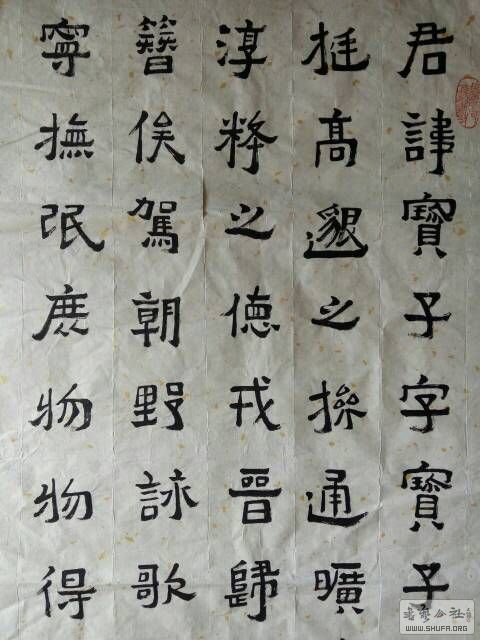 君諱寶子字寶子
挺高邈之操通曠
淳粹之德戎晉歸
簪俟駕朝野詠歌
寧撫氓庶物物得
書藝公社
WWW.SHUFA.ORG